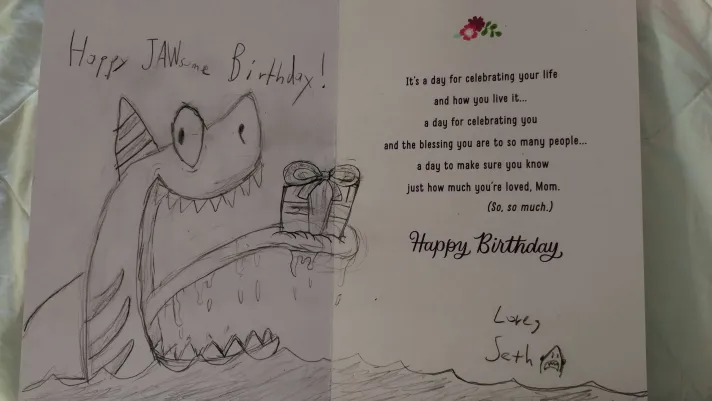 Happy JAWsome Birthday!
It's a day for celebrating your life
and how you live it...
a day for celebrating you
and the blessing you are to so many people...
a day to make sure you know
just how much you're loved, Mom.
(So, so much.)
Happy Birthday
Love,
Seth